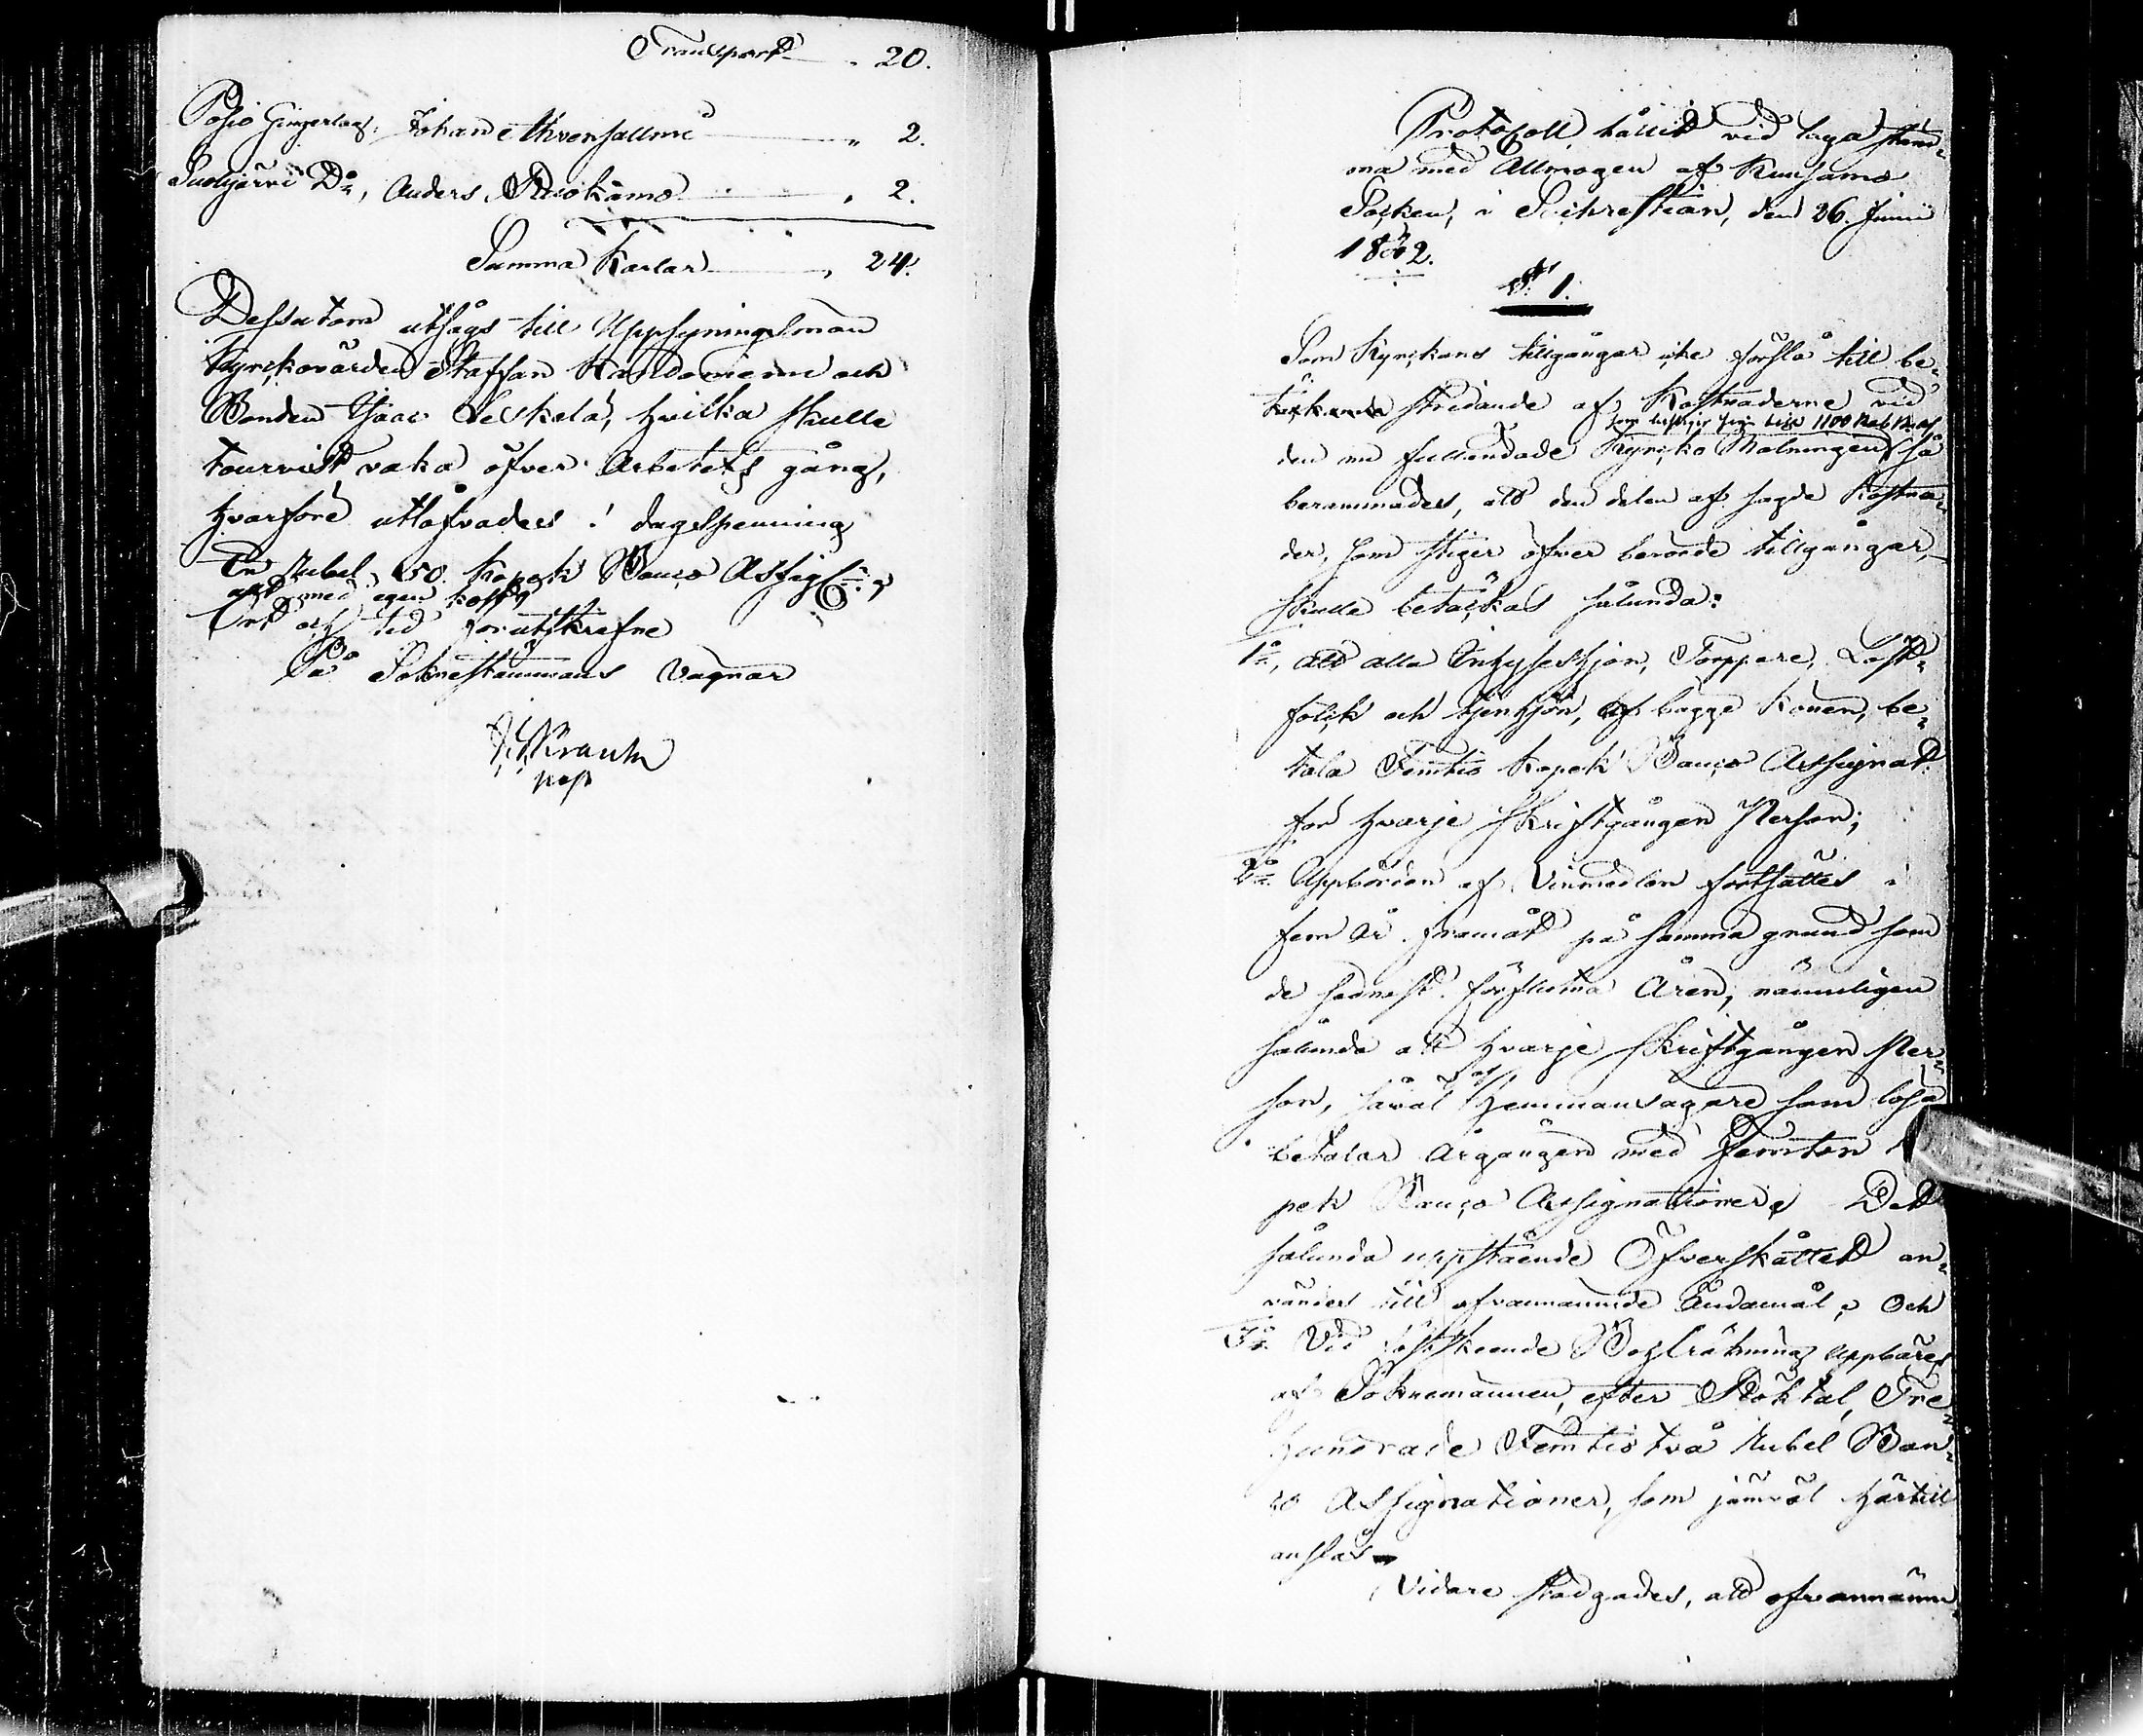 Transport - 20.
Posio Gingerlag, Johan Ahvensallmi " 2.
Suolijärvi Do, Anders Riuokamo " 2.
Summa Karlar " 24.
Dessutom utsågs till Uppsyningsmän
Kyrckovärden Staffan Kandoniemi och
Bonden Isaac Leskelä, hvilka skulle
tourvist vaka öfver Arbetets gång,
hvarföre utlofvades i dagspenning
En Rubel 50. kopek Banco Assign:r
allt med egen kost
Ort och tid förutskrefne
På Soknestämmans vägnar
Protocoll, hållit vid laga stäm-
ma med Allmogen af Kuusamo
Socken, i Sochrestian, den 26. Junii
1802.
§ 1.
Som Kyrckans tillgångar icke förslå till be-
stridande af Kostnaderne vid
som bestiger sig till 1100 Rub. B. As
den nu fulländade Kyrcko Målningen, så
berammades, att den delen af sagde Kostna-
der, som stiger öfver beroende tillgångar,
skulle betäckas sålunda:
1o, att alla Inhyseshjon, Torppare, Löst-
folck och tjensthjon, af bägge Könen, be-
tala Femtio kopek Banco Assignat:
for hvarje skriftgången Person;
2o. Uppbörden af Vinmedlen fortsättes i
fem år framåt på samma grund som
de sednast förflutna Åren, nämligen
sålunda att hvarje skriftgången Per-
son, såväl af Hemmansägare som lösa
betalar årgången med femton
pek Banco Assignationer; Det
sålunda uppstående Öfverskottet an-
vändes till ofvannämnde Ändamål; och
3o. Vid skeende Bogräkning uppbäres
af Soknemännen, efter Röktal, Tre
hundrade Femtiotvå Rubel Ban-
co Assignationer, som jämväl härtill
anslås
Vidare stadgades, att ofvannämn-